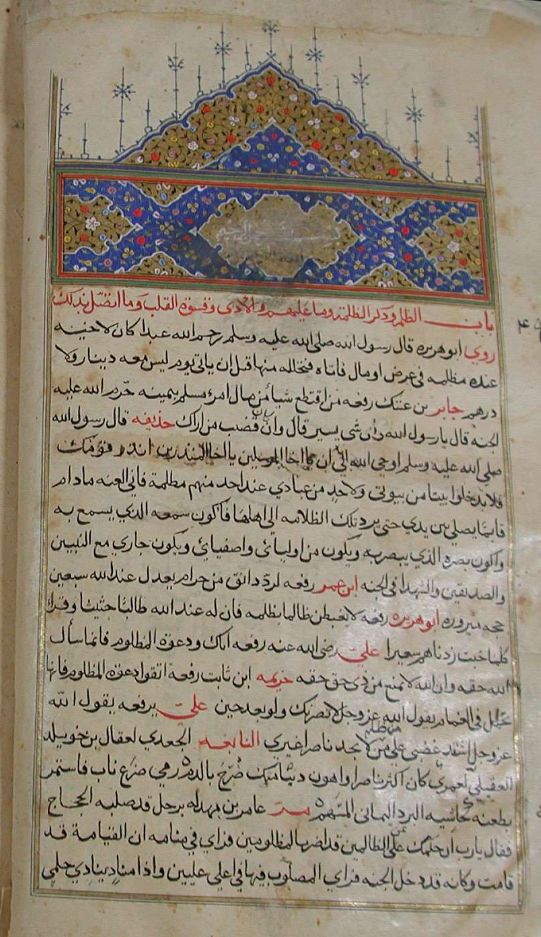 بسم الله الرحمن الرحيم
باب الظلم وذكر الظلمة وما عليهم والاذى وقسوة القلب وما اتصل بذلك
روي ابو هريره قال رسول الله صلى الله عليه وسلم رحم الله عبدا كان لاخيه
عنده مظلمه في عرض او مال فاتاه فتحلله منها قبل ان ياتي يوم ليس معه دينار ولا
درهم جابر بن عتيك رفعه من اقتطع شيا من مال امرئ مسلم بيمينه حرم الله عليه
الجنه قال يا رسول الله وان شي يسير قال وان قضيب من اراك حذيفه قال رسول الله
صلى الله عليه وسلم اوحي الله الي ان يا اخا المرسلين يا اخا المنذرين انذر قومك
فلا يدخلوا بيتا من بيوتي ولاحد من عبادي عند احد منهم مظلمة فاني العنه ما دام
قايما يصلي بين يدي حتى يرد تلك الظلامه الى اهلها فاكون سمعه الذي يسمع به
واكون بصره الذي يبصر به ويكون من اوليائي واصفيائي ويكون جاري مع النبيين
والصديقين والشهدا في الجنه ابن عمر رفعه لرد دانق من حرام يعدل عند الله سبعين
حجه مبروره ابو هريره رفعه لا تغبطن ظالما بظلمه فان له عند الله طالبا حثيثا وقرا
كلما خبت زدناهم سعيرا علي رضي الله عنه رفعه اياك ودعوة المظلوم فانما سأل
الله حقه وان الله لا يمنع من ذي حق حقه خزيمه ابن ثابت رفعه اتقوا دعوة المظلوم فانها
تحمل في الغمام يقول الله عز وجل لانصرنك ولو بعد حين علي يرفعه يقول الله
عز وجل اشتد غضبي على من ظلم من لا يجد ناصرا غيري النابغه الجعدي لعقال بن خويلد
العقيلي لعمري كان اكثر ناصرا واهون ذنبا منك ضرج بالدم رمى ضرع ناب فاستمر
بطعنه كحاشيه البرد اليماني المسهم مر عامر بن بهدله برجل قد صلبه الحجاج
فقال يا رب ان حلمك عن الظالمين قد اضر بالمظلومين فراي في منامه ان القيامة قد
قامت وكانه قد دخل الجنه فراي المصلوب فيها في اعلي عليين واذا مناد ينادي حلمي